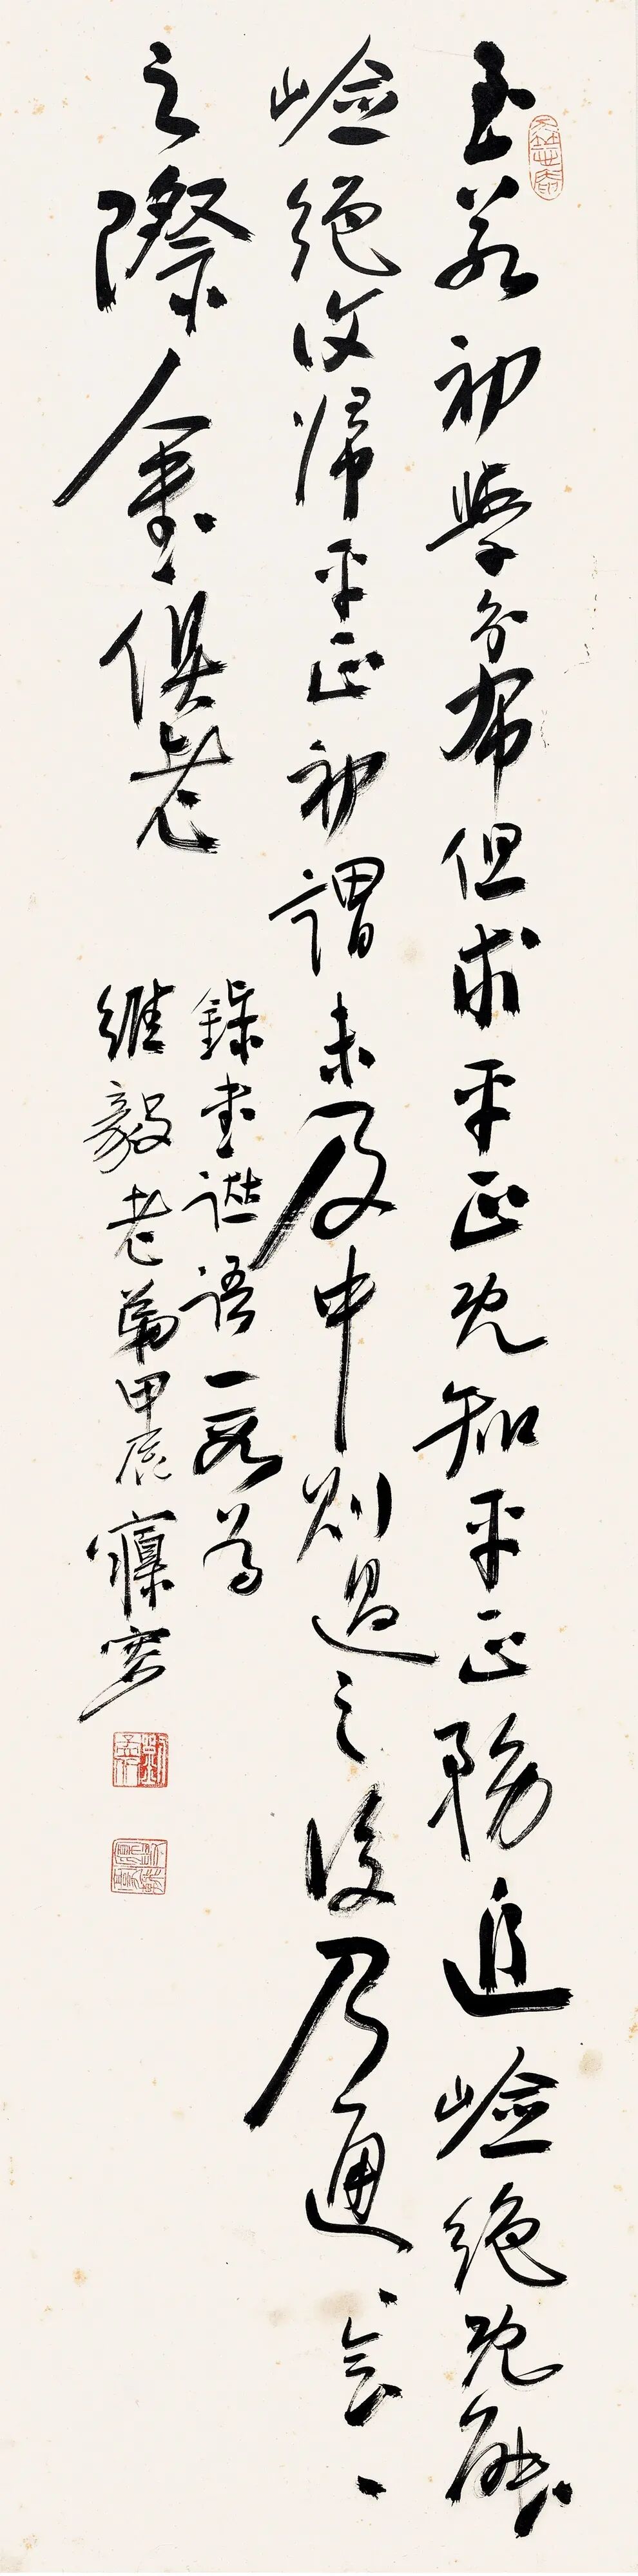 至若初學分布但求平正既知平正務追嶮絕既能
嶮絕復歸平正初謂未及中則過之後乃通、會、
之際人書俱老
錄書譜語一段為
維毅老弟甲辰寱叟